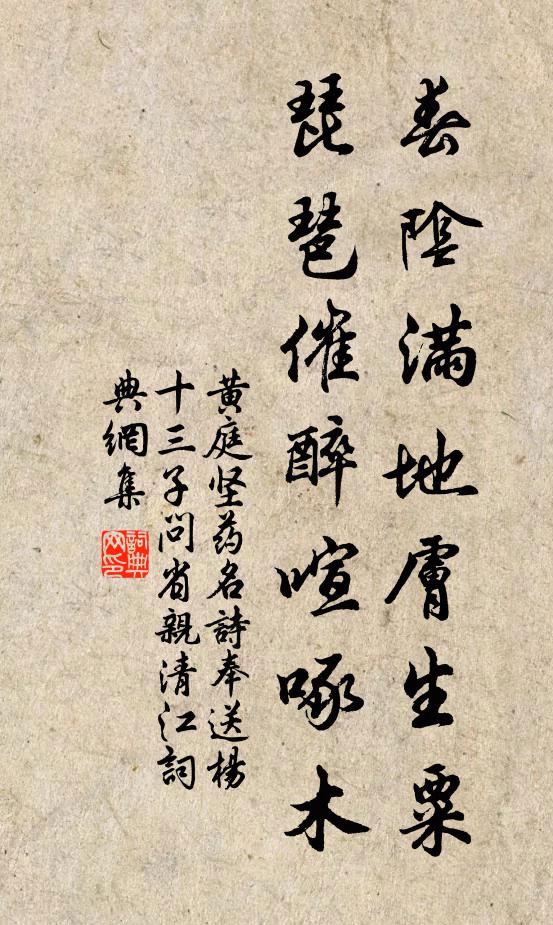 春陰滿地膚生粟
琵琶催醉喧啄木
黄庭坚药名詩奉送楊
十三子問省親清江詞
典網集
詞典网印